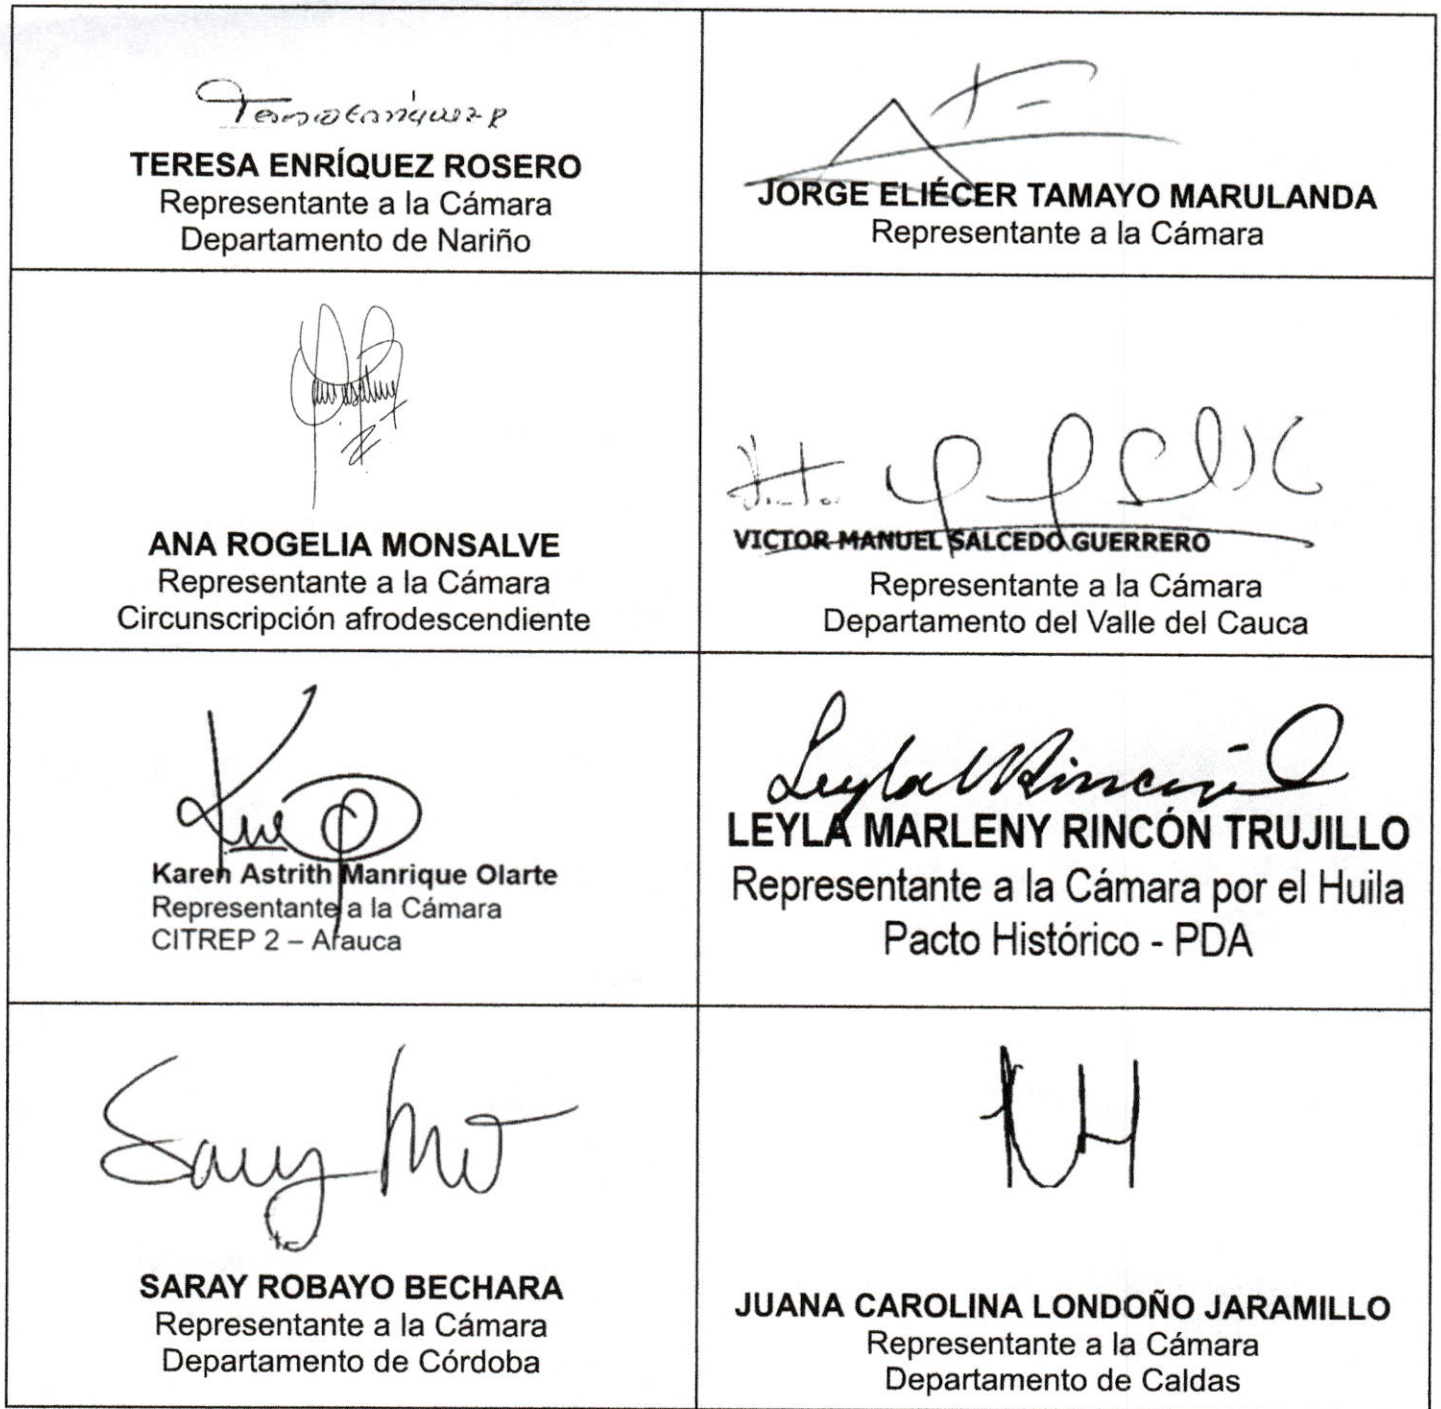 Teresa Enríquez R
TERESA ENRÍQUEZ ROSERO
Representante a la Cámara
Departamento de Nariño
JORGE ELIÉCER TAMAYO MARULANDA
Representante a la Cámara
ANA ROGELIA MONSALVE
Representante a la Cámara
Circunscripción afrodescendiente
Victor
VICTOR MANUEL SALCEDO GUERRERO
Representante a la Cámara
Departamento del Valle del Cauca
Karen Astrith Manrique Olarte
Representante a la Cámara
CITREP 2 – Arauca
Leyla Rincón
LEYLA MARLENY RINCÓN TRUJILLO
Representante a la Cámara por el Huila
Pacto Histórico - PDA
Saray
SARAY ROBAYO BECHARA
Representante a la Cámara
Departamento de Córdoba
JUANA CAROLINA LONDOÑO JARAMILLO
Representante a la Cámara
Departamento de Caldas